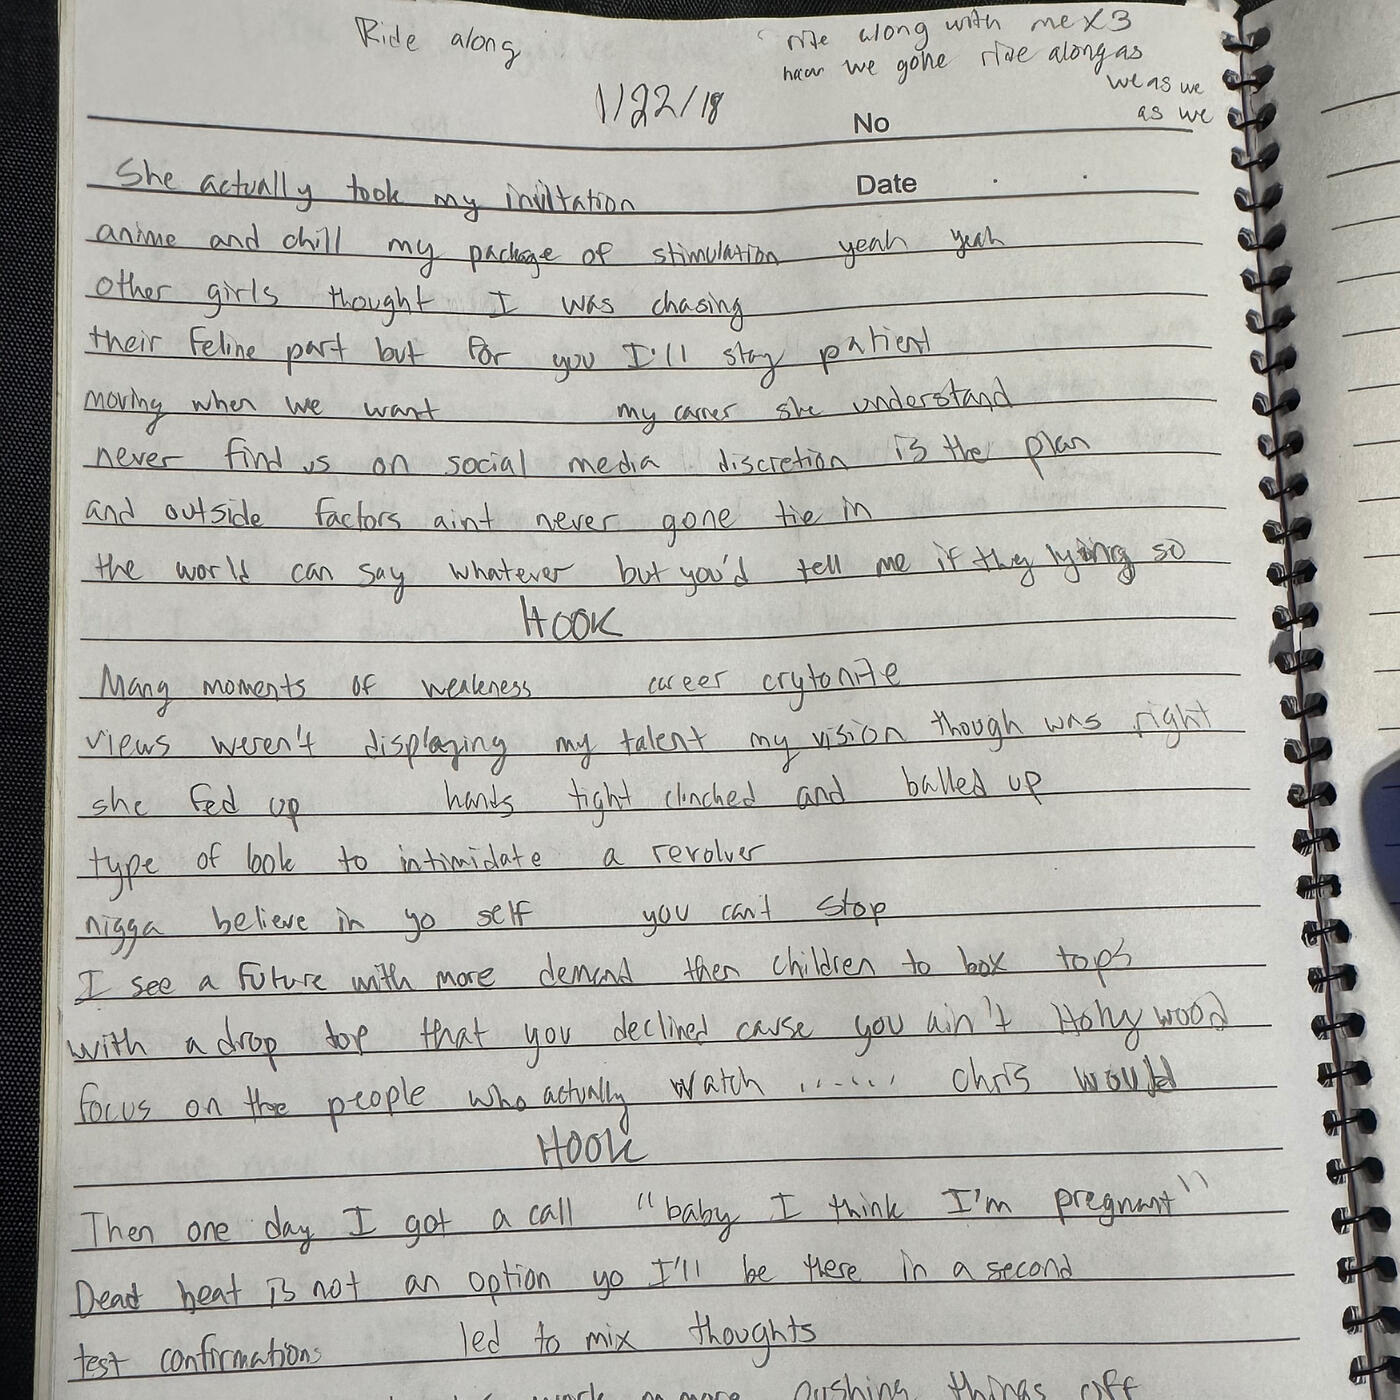 Ride along
ride along with me X3
we gone ride along as
we as we
as we
1/22/18
No
She actually took my invitation
Date
anime and chill my package of stimulation yeah yeah
other girls thought I was chasing
their feline part but for you I'll stay patient
moving when we want my career she understand
never find us on social media discretion is the plan
and outside factors aint never gone tie in
the world can say whatever but you'd tell me if they lying so
HOOK
Many moments of weakness career crytonite
views weren't displaying my talent my vision though was right
she fed up hands tight clinched and balled up
type of look to intimidate a revolver
nigga believe in yo self you can't stop
I see a future with more demand then children to box tops
with a drop top that you declined cause you ain't Hollywood
focus on the people who actually watch ...... chris would
HOOK
Then one day I got a call "baby I think I'm pregnant"
Dead beat is not an option yo I'll be there in a second
test confirmations led to mix thoughts
work no more pushing things off